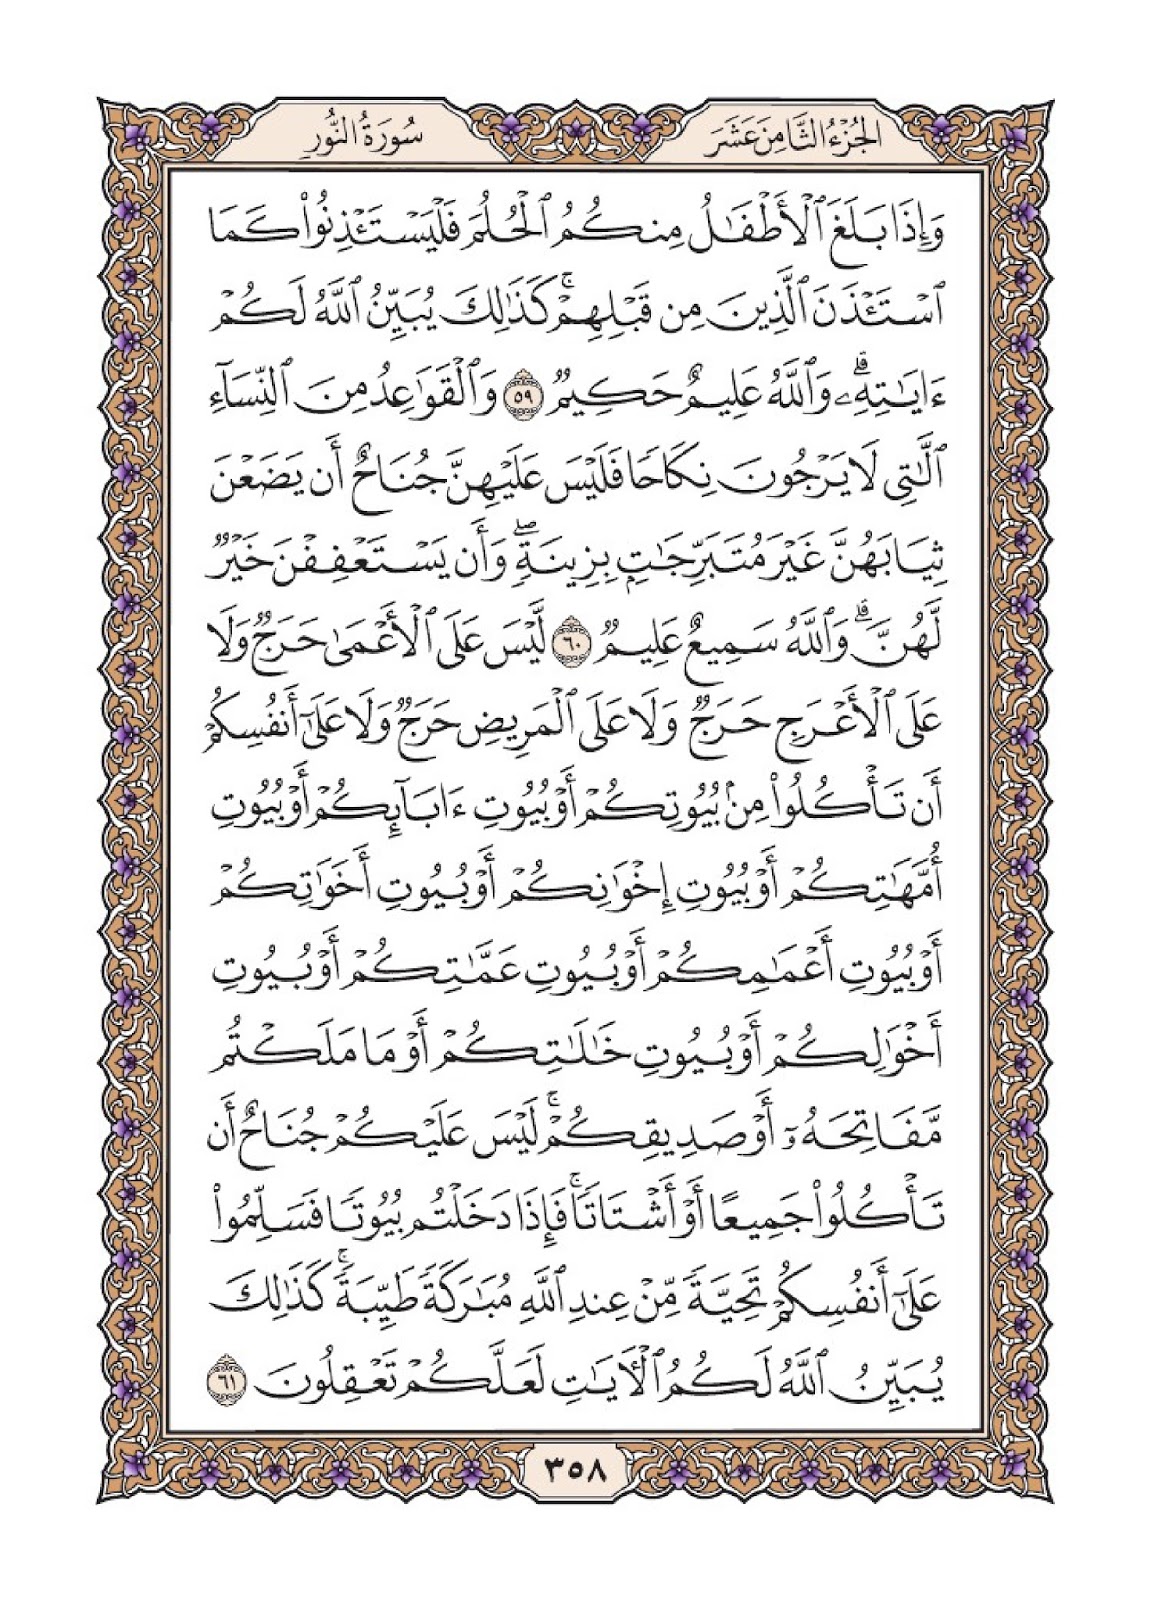 الجُزْءُ الثَّامِنَ عَشَرَ
سُورَةُ النُّورِ
وَإِذَا بَلَغَ ٱلْأَطْفَٰلُ مِنكُمُ ٱلْحُلُمَ فَلْيَسْتَـْٔذِنُوا۟ كَمَا
ٱسْتَـْٔذَنَ ٱلَّذِينَ مِن قَبْلِهِمْ ۚ كَذَٰلِكَ يُبَيِّنُ ٱللَّهُ لَكُمْ
ءَايَٰتِهِۦ ۗ وَٱللَّهُ عَلِيمٌ حَكِيمٌ ٥٩ وَٱلْقَوَٰعِدُ مِنَ ٱلنِّسَآءِ
ٱلَّٰتِى لَا يَرْجُونَ نِكَاحًا فَلَيْسَ عَلَيْهِنَّ جُنَاحٌ أَن يَضَعْنَ
ثِيَابَهُنَّ غَيْرَ مُتَبَرِّجَٰتٍۭ بِزِينَةٍ ۖ وَأَن يَسْتَعْفِفْنَ خَيْرٌ
لَّهُنَّ ۗ وَٱللَّهُ سَمِيعٌ عَلِيمٌ ٦٠ لَّيْسَ عَلَى ٱلْأَعْمَىٰ حَرَجٌ وَلَا
عَلَى ٱلْأَعْرَجِ حَرَجٌ وَلَا عَلَى ٱلْمَرِيضِ حَرَجٌ وَلَا عَلَىٰٓ أَنفُسِكُمْ
أَن تَأْكُلُوا۟ مِنۢ بُيُوتِكُمْ أَوْ بُيُوتِ ءَابَآئِكُمْ أَوْ بُيُوتِ
أُمَّهَٰتِكُمْ أَوْ بُيُوتِ إِخْوَٰنِكُمْ أَوْ بُيُوتِ أَخَوَٰتِكُمْ
أَوْ بُيُوتِ أَعْمَٰمِكُمْ أَوْ بُيُوتِ عَمَّٰتِكُمْ أَوْ بُيُوتِ
أَخْوَٰلِكُمْ أَوْ بُيُوتِ خَٰلَٰتِكُمْ أَوْ مَا مَلَكْتُم
مَّفَاتِحَهُۥٓ أَوْ صَدِيقِكُمْ ۚ لَيْسَ عَلَيْكُمْ جُنَاحٌ أَن
تَأْكُلُوا۟ جَمِيعًا أَوْ أَشْتَاتًا ۚ فَإِذَا دَخَلْتُم بُيُوتًا فَسَلِّمُوا۟
عَلَىٰٓ أَنفُسِكُمْ تَحِيَّةً مِّنْ عِندِ ٱللَّهِ مُبَٰرَكَةً طَيِّبَةً ۚ كَذَٰلِكَ
يُبَيِّنُ ٱللَّهُ لَكُمُ ٱلْءَايَٰتِ لَعَلَّكُمْ تَعْقِلُونَ ٦١
٣٥٨